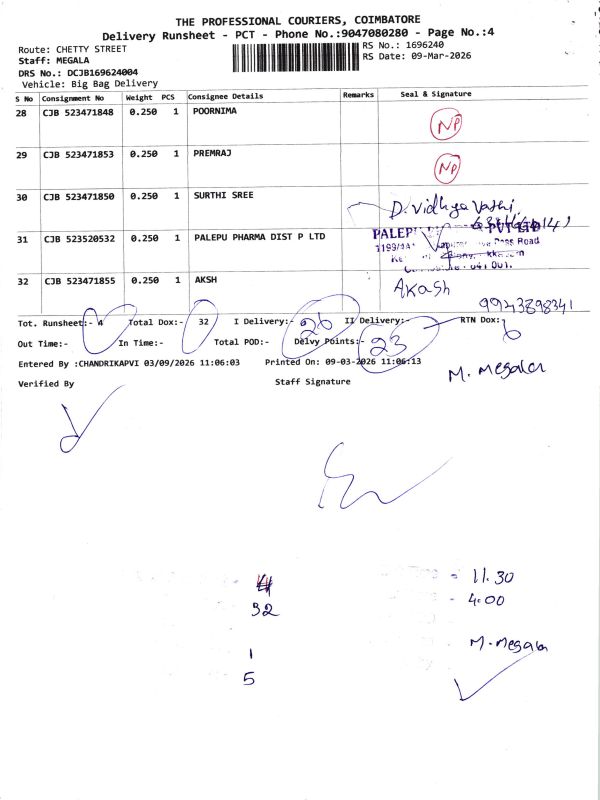 THE PROFESSIONAL COURIERS, COIMBATORE
Delivery Runsheet - PCT - Phone No.:9047080280 - Page No.:4
Route: CHETTY STREET
RS No.: 1696240
Staff: MEGALA
RS Date: 09-Mar-2026
DRS No.: DCJB169624004
Vehicle: Big Bag Delivery
S No Consignment No Weight PCS Consignee Details Remarks Seal & Signature
28 CJB 523471848 0.250 1 POORNIMA NP
29 CJB 523471853 0.250 1 PREMRAJ NP
30 CJB 523471850 0.250 1 SURTHI SREE D. Vidhya Vathi
31 CJB 523520532 0.250 1 PALEPU PHARMA DIST P LTD PALEPU PVT LTD
Road
641 001.
32 CJB 523471855 0.250 1 AKSH Akash
9943898341
Tot. Runsheet:- 4 Total Dox:- 32 I Delivery:- 26 II Delivery:- RTN Dox:- 6
Out Time:- In Time:- Total POD:- Delvy Points:- 23
Entered By :CHANDRIKAPVI 03/09/2026 11:06:03 Printed On: 09-03-2026 11:06:13
M. Megala
Verified By Staff Signature
4 - 11.30
32 - 4.00
1 M. Megala
5